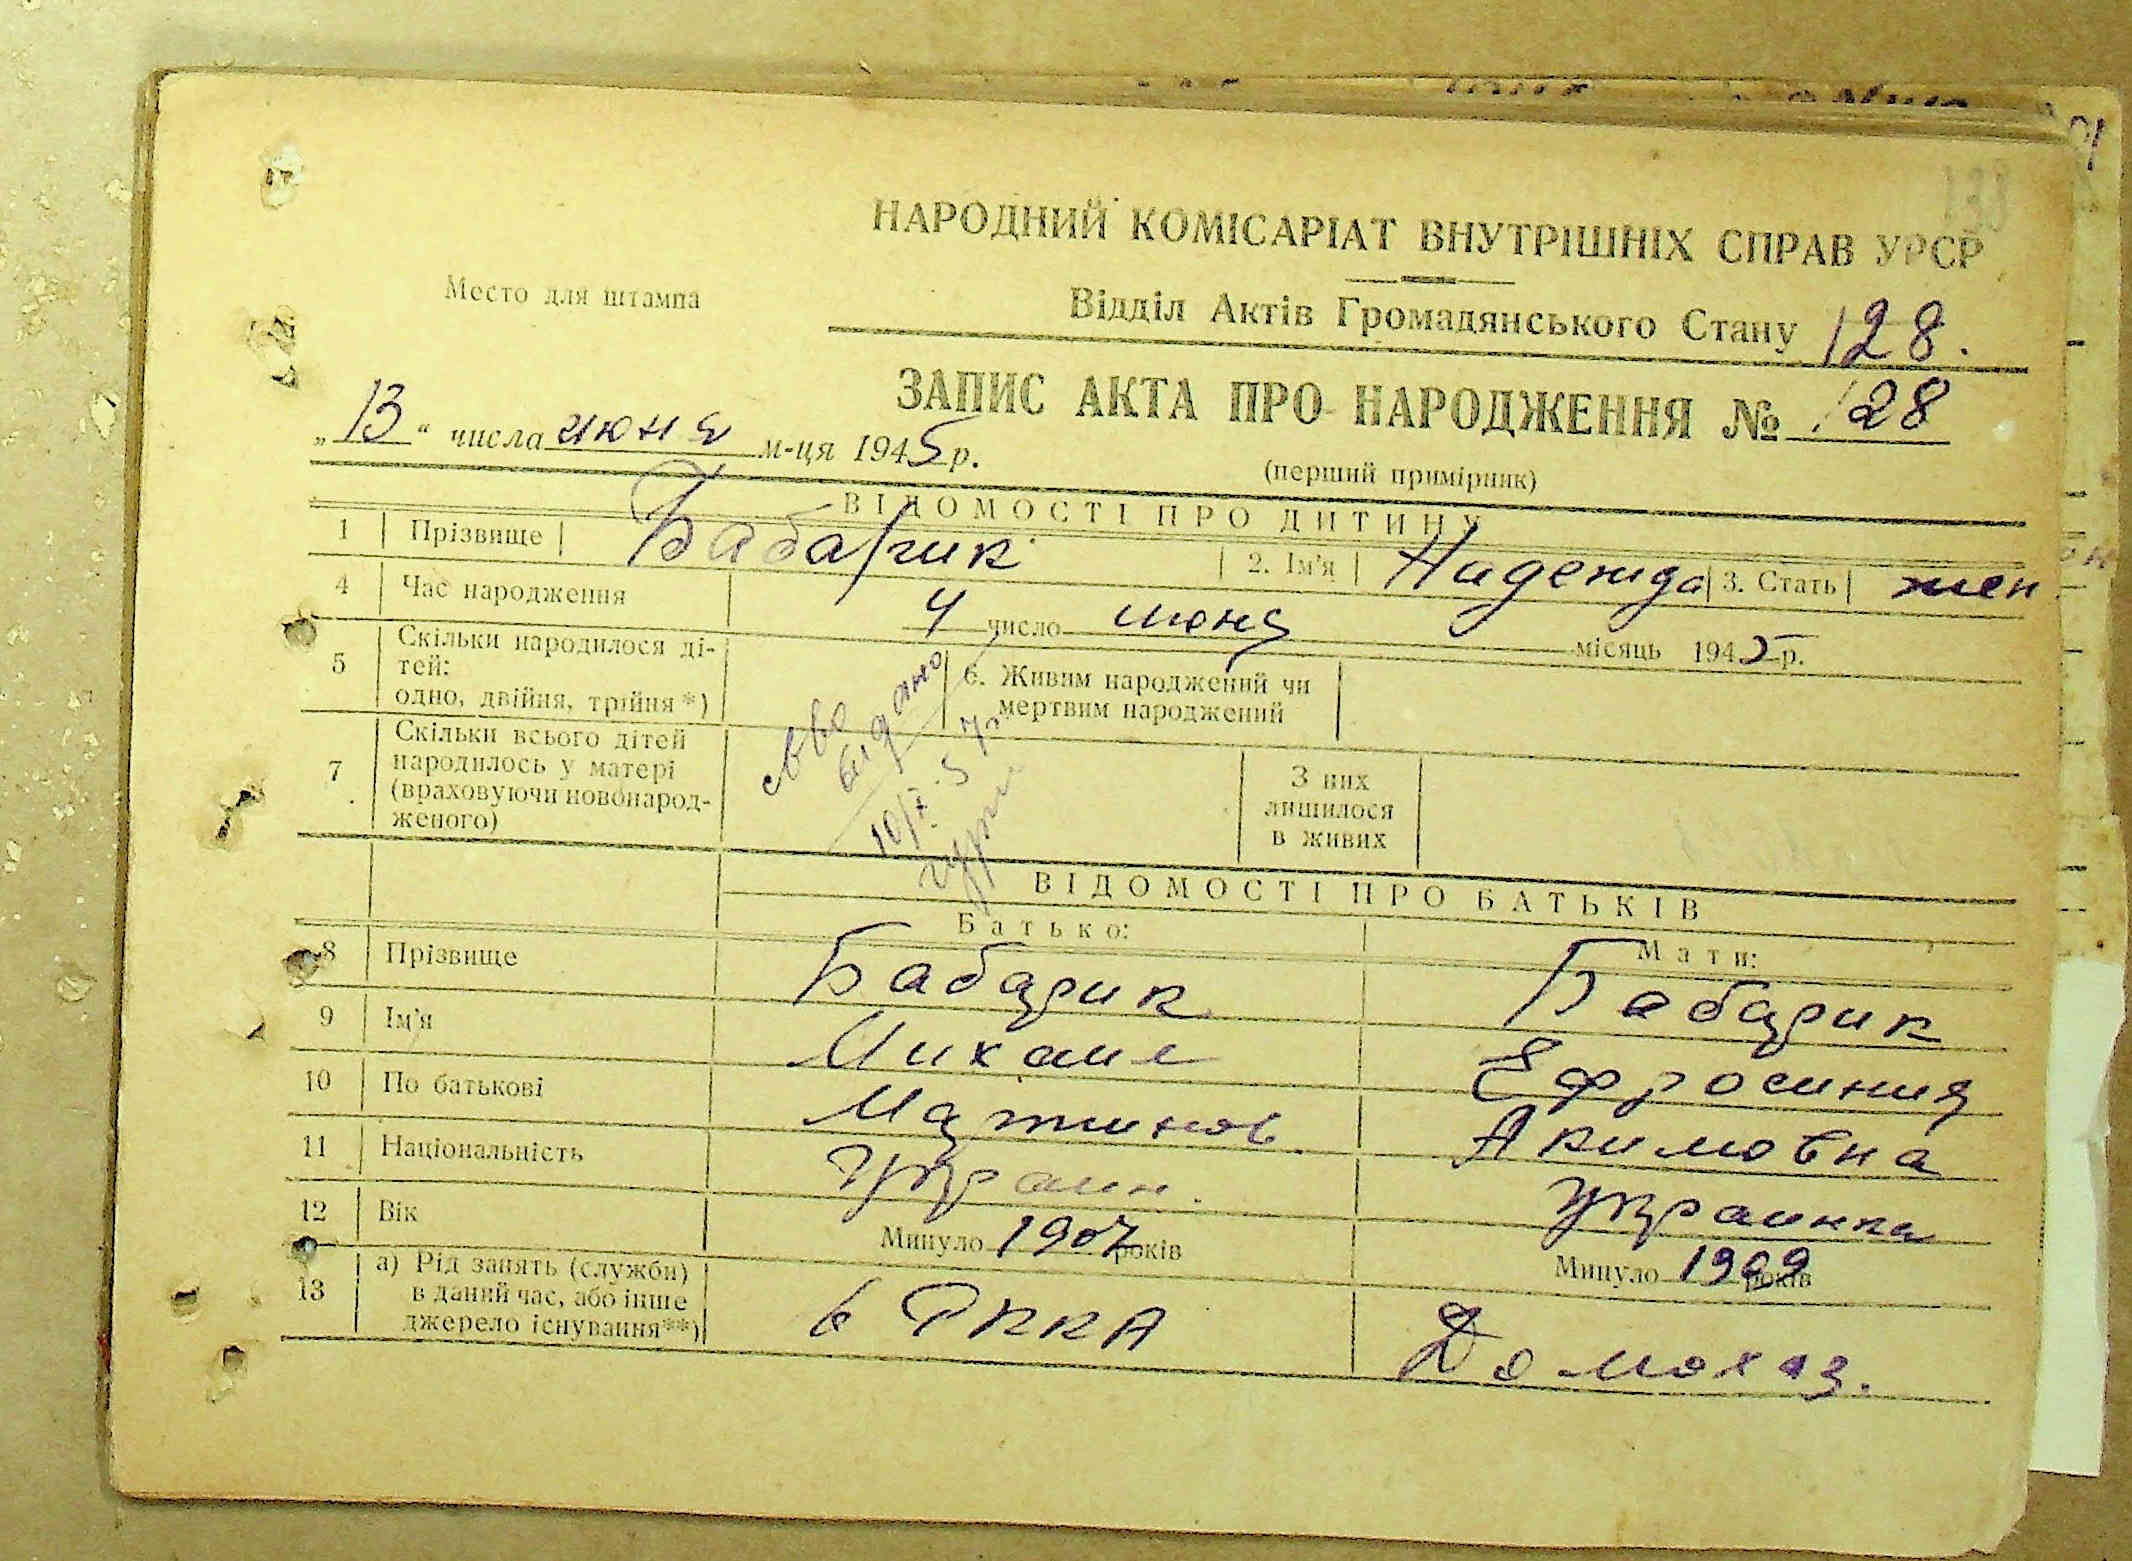 НАРОДНИЙ КОМІСАРІАТ ВНУТРІШНІХ СПРАВ УРСР
Место для штампа
Відділ Актів Громадянського Стану 128.
ЗАПИС АКТА ПРО НАРОДЖЕННЯ № 128
„13“ числа июня м-ця 1945 р.
(перший примірник)
ВІДОМОСТІ ПРО ДИТИНУ
1 Прізвище Бабарик 2. Ім'я Надежда 3. Стать жен
4 Час народження 4 число июня місяць 1945 р.
5 Скільки народилося ді-
тей:
одно, двійня, трійня*)
6. Живим народжений чи
мертвим народжений
7 Скільки всього дітей
народилось у матері
(враховуючи новонарод-
женого)
З них
лишилося
в живих
св во
видано
10/X-57г
ВІДОМОСТІ ПРО БАТЬКІВ
Батько: Мати:
8 Прізвище Бабарик Бабарик
9 Ім'я Михаил Ефросиния
10 По батькові Мартинов. Акимовна
11 Національність Украин. Украинка
12 Вік Минуло 1907 років Минуло 1909 років
13 а) Рід занять (служби)
в даний час, або інше
джерело існування**)
в РККА Домохаз.